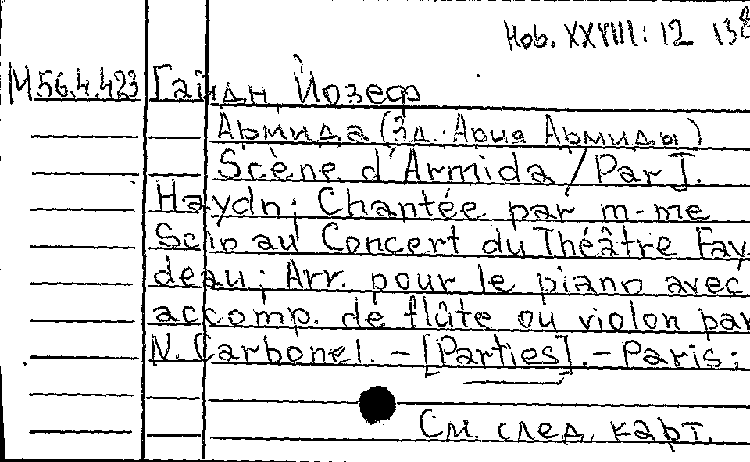 Hob. XXVIII: 12 138
М56.4.423 Гайдн, Йозеф
Армида (Зд. Ария Армиды)
Scène d'Armida / Par J.
Haydn; Chantée par m-me
Scio au Concert du Théâtre Fay
deau; Arr. pour le piano avec
accomp. de flûte ou violon par
N. Carbonel. – [Parties]. – Paris:
См. след. карт.